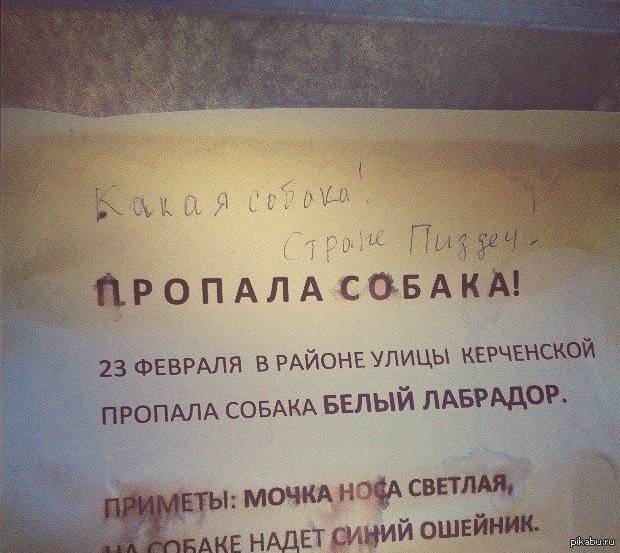 Какая собака!
Стране Пиздец!
ПРОПАЛА СОБАКА!
23 ФЕВРАЛЯ В РАЙОНЕ УЛИЦЫ КЕРЧЕНСКОЙ
ПРОПАЛА СОБАКА БЕЛЫЙ ЛАБРАДОР.
ПРИМЕТЫ: МОЧКА НОСА СВЕТЛАЯ,
НА СОБАКЕ НАДЕТ СИНИЙ ОШЕЙНИК.
pikabu.ru